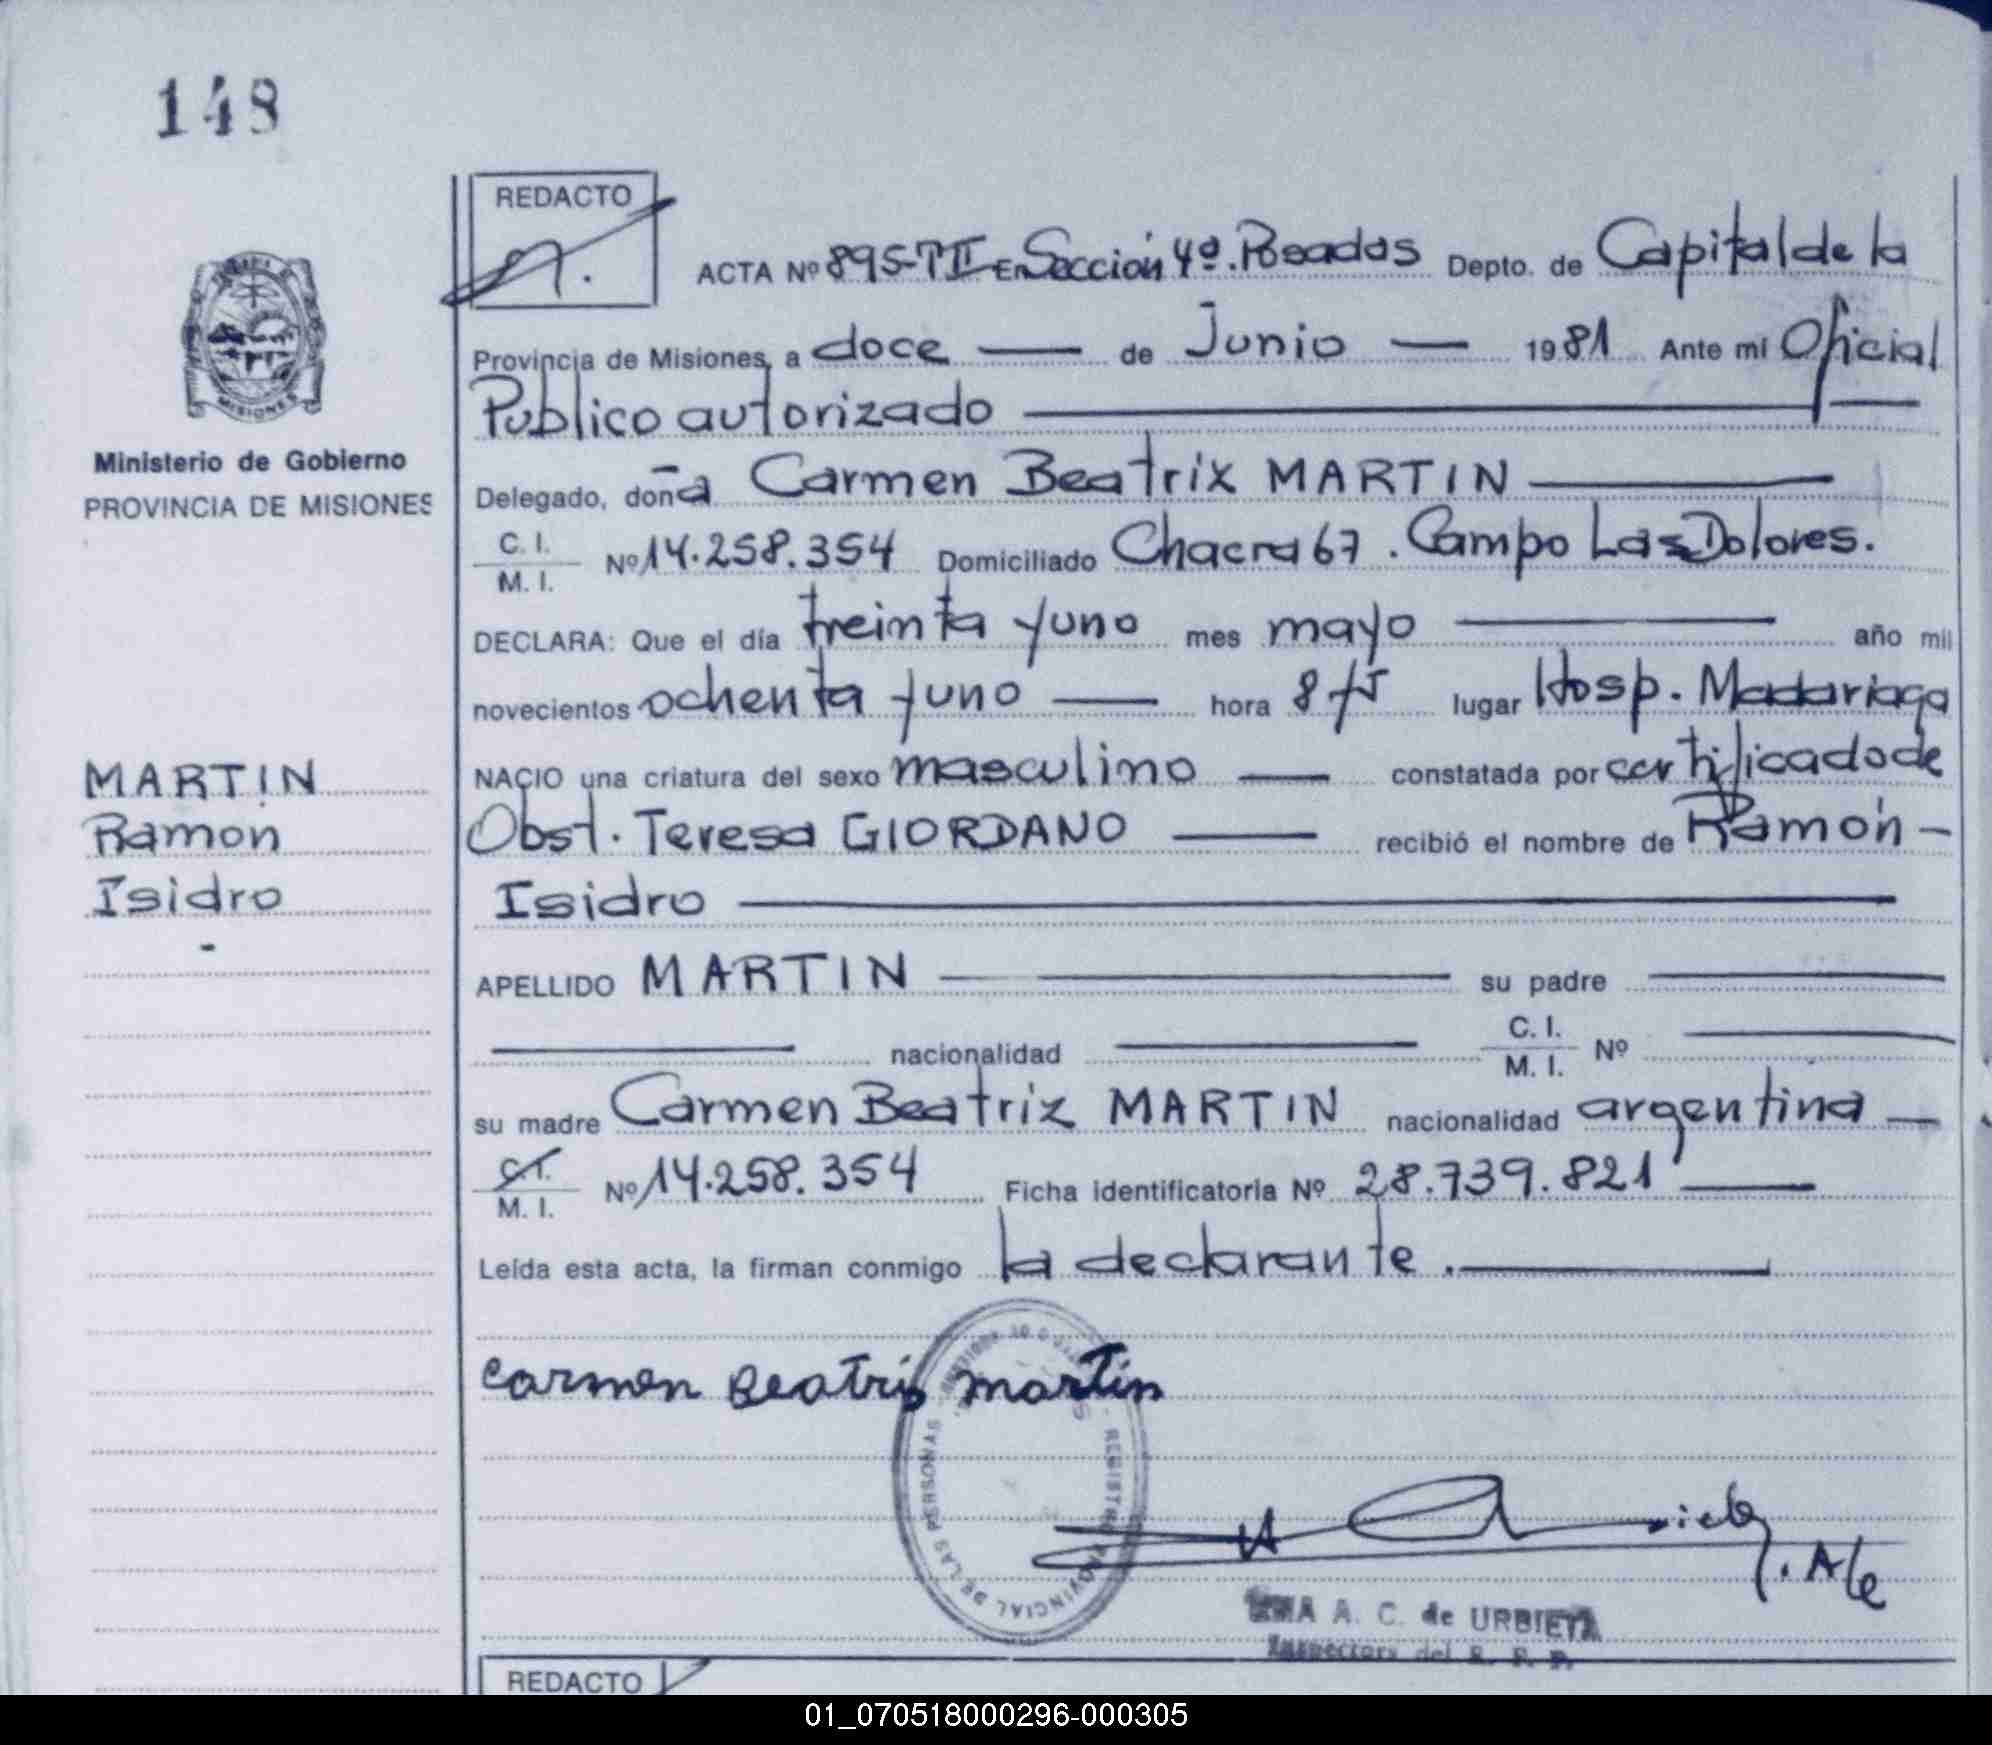 148
REDACTO
ACTA Nº 895-TII En Sección 4ª. Posadas Depto. de Capital de la
Provincia de Misiones, a doce — de Junio — 1981 Ante mi Oficial
Publico autorizado
Ministerio de Gobierno
PROVINCIA DE MISIONES
Delegado, doña Carmen Beatrix MARTIN
C. I.
M. I. Nº 14.258.354 Domiciliado Chacra 67. Campo Las Dolores.
DECLARA: Que el día treinta y uno mes mayo — año mil
novecientos ochenta y uno — hora 8 lugar Hosp. Madariaga
MARTIN
Ramon
Isidro
-
NACIO una criatura del sexo masculino — constatada por certificado de
Obst. Teresa GIORDANO — recibió el nombre de Ramón -
Isidro
APELLIDO MARTIN — su padre —
— nacionalidad — C. I.
M. I. Nº —
su madre Carmen Beatriz MARTIN nacionalidad argentina —
C. I.
M. I. Nº 14.258.354 Ficha identificatoria Nº 28.739.821 —
Leída esta acta, la firman conmigo la declarante. —
Carmen Beatris Martin
REGISTRO PROVINCIAL DE LAS PERSONAS
A. C. de URBIETA
Inspectora del R. P. P.
REDACTO
01_070518000296-000305